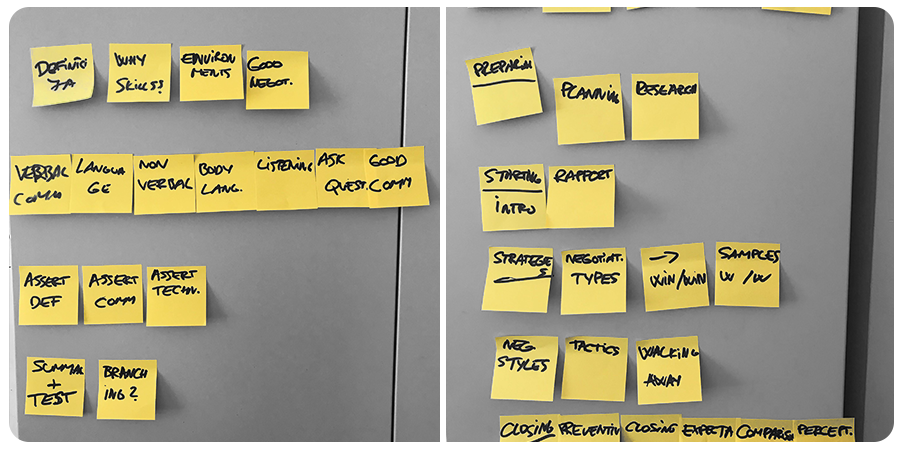 DEFINITIO
7A
WHY
SKILLS?
ENVIRON
MENTS
GOOD
NEGOT.
VERBAL
COMM
LANGUA
GE
NON
VERBAL
BODY
LANG.
LISTENING
ASK
QUEST.
GOOD
COMM
ASSERT
DEF
ASSERT
COMM
ASSERT
TECHN.
SUMMA
+
TEST
BRANCH
ING?
PREPARIN
PLANNING
RESEARCH
STARTING
INTRO
RAPPORT
STRATEGIE
S
NEGOTIAT.
TYPES
→
WIN/WIN
SAMPLES
W/W
NEG
STYLES
TACTICS
WALKING
AWAY
CLOSING
PREVENTIV
CLOSING
EXPECTA
COMPARIS
PERCEPT.